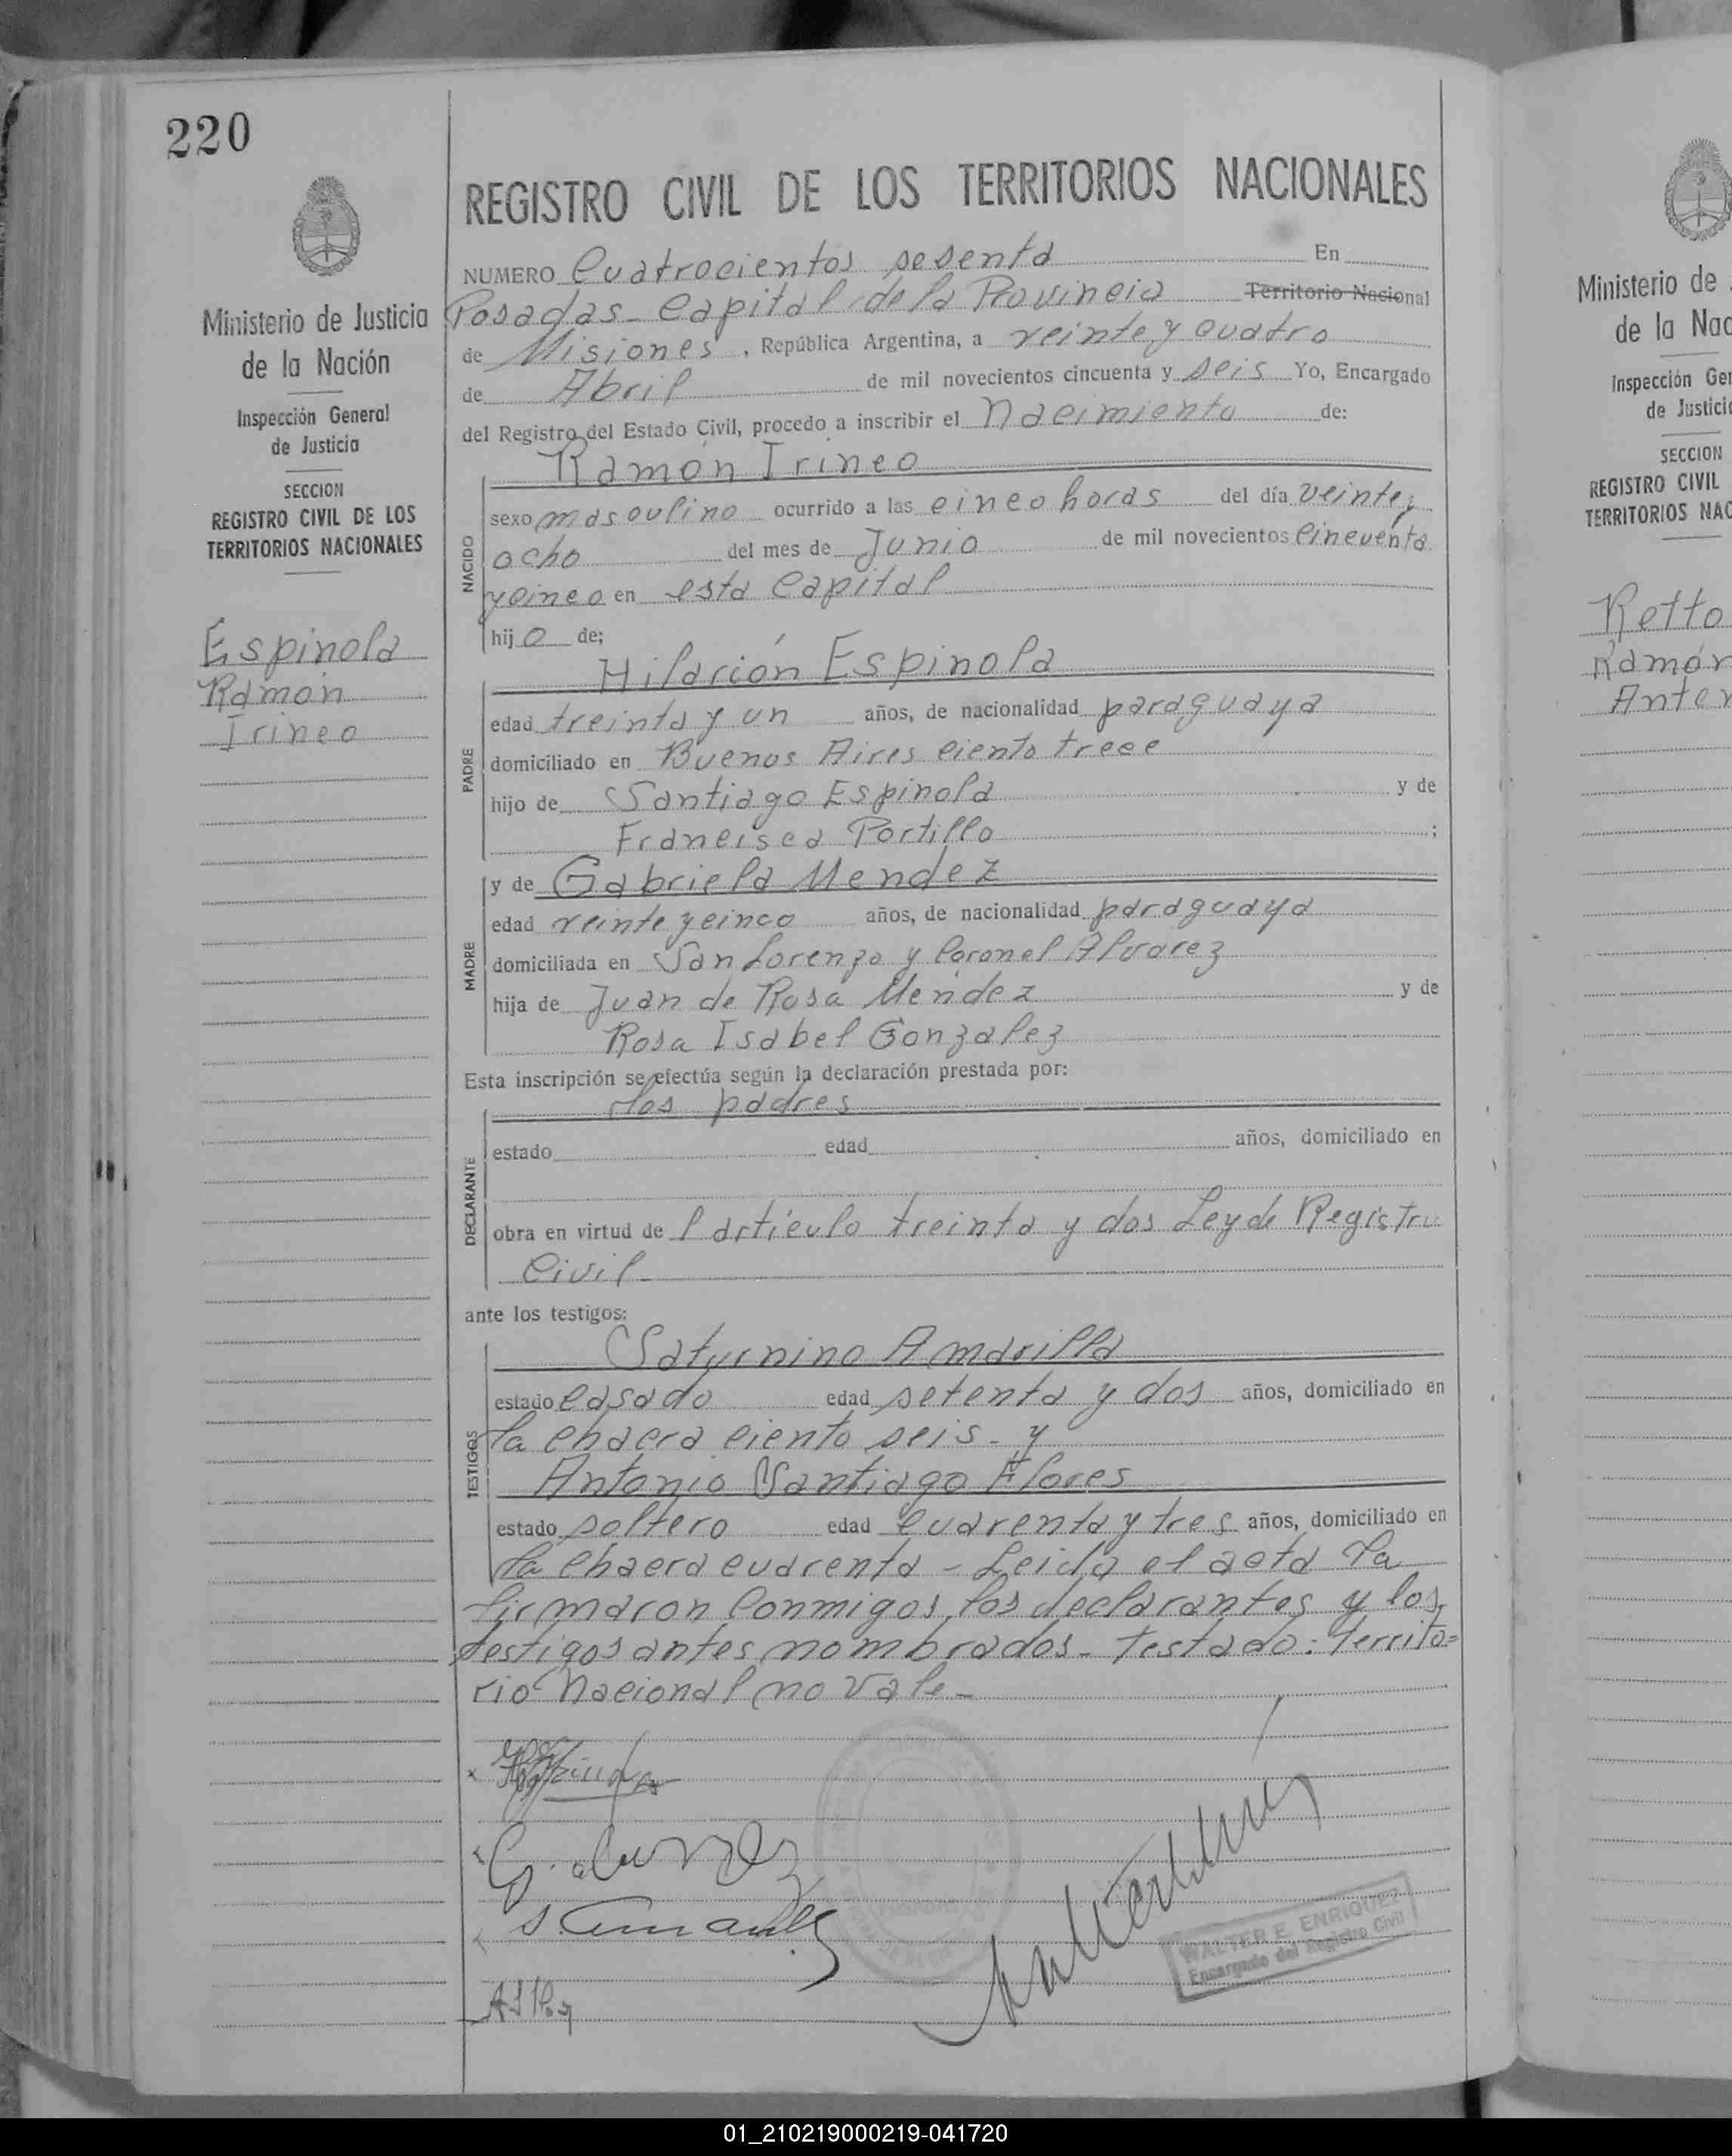 220
REGISTRO CIVIL DE LOS TERRITORIOS NACIONALES
Ministerio de Justicia
de la Nación
Inspección General
de Justicia
SECCION
REGISTRO CIVIL DE LOS
TERRITORIOS NACIONALES
Espinola
Ramón
Irineo
NUMERO Cuatrocientos sesenta En
Posadas - Capital de la Provincia Territorio Nacional
de Misiones, República Argentina, a veinte y cuatro
de Abril de mil novecientos cincuenta y seis Yo, Encargado
del Registro del Estado Civil, procedo a inscribir el nacimiento de:
Ramón Irineo
NACIDO
sexo masculino ocurrido a las cinco horas del día veinte y
ocho del mes de Junio de mil novecientos cincuenta
y cinco en esta Capital
hijo de;
Hilarión Espinola
PADRE
edad treinta y un años, de nacionalidad paraguaya
domiciliado en Buenos Aires ciento trece
hijo de Santiago Espinola y de
Francisca Portillo ;
y de Gabriela Mendez
MADRE
edad veinte y cinco años, de nacionalidad paraguaya
domiciliada en San Lorenzo y Coronel Alvarez
hija de Juan de Rosa Mendez y de
Rosa Isabel Gonzalez
Esta inscripción se efectúa según la declaración prestada por:
los padres
DECLARANTE
estado edad años, domiciliado en
obra en virtud de l artículo treinta y dos Ley de Registro
Civil
ante los testigos:
Saturnino Amarilla
TESTIGOS
estado casado edad setenta y dos años, domiciliado en
la chacra ciento seis - y
Antonio Santiago Flores
estado soltero edad cuarenta y tres años, domiciliado en
la chacra cuarenta - Leida el acta la
firmaron conmigos, los declarantes y los
testigos antes nombrados - Testado: Territo=
rio Nacional no vale -
WALTER E. ENRIQUEZ
Encargado del Registro Civil
Ministerio de
de la Nac
Inspección Ger
de Justicia
SECCION
REGISTRO CIVIL
TERRITORIOS NAC
Retto
Ramón
Anter
01_210219000219-041720